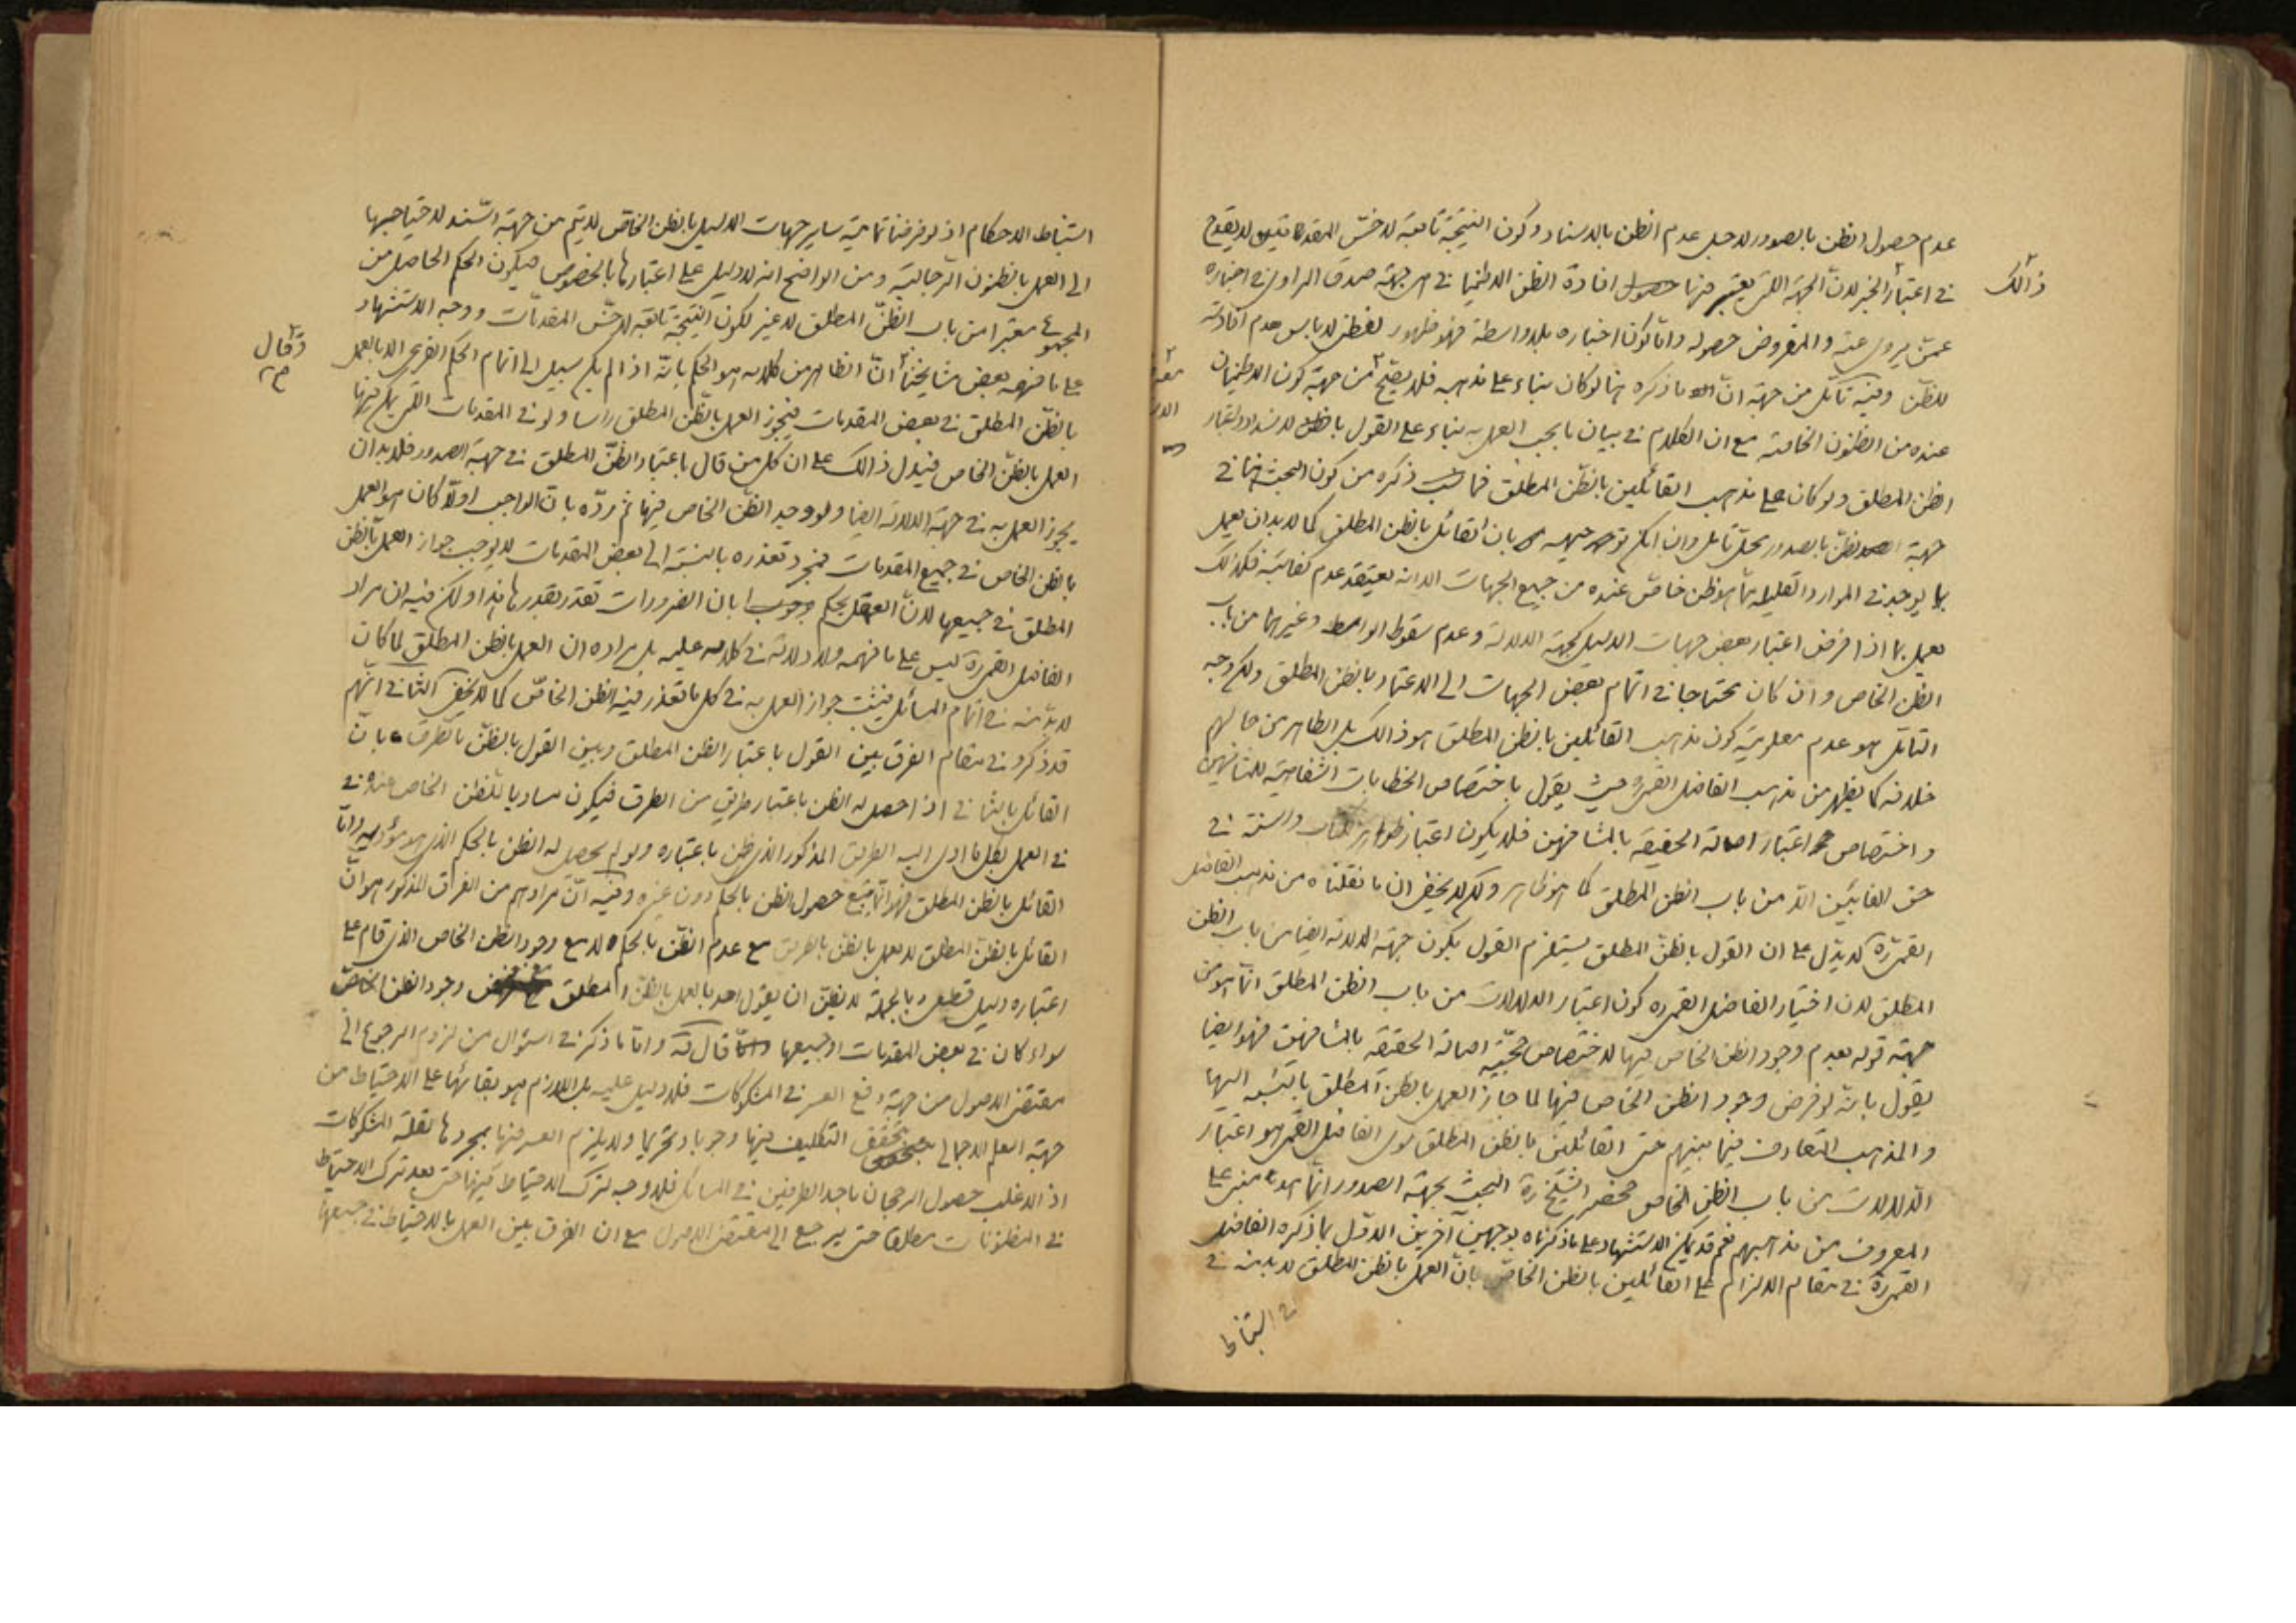 عدم حصول الظن بالصدور لاجل عدم الظن بالاسناد وكون النتيجة تابعة لاخسّ المقدمتين لا يقدح
ذالك
في اعتبار الخبر لانّ الجهة التى يعتبر فيها حصول افادة الظن الاطمينا في هى جهة صدق الراوى في اخباره
عمّن يروى عنه والمفروض حصوله وامّا كون اخباره بلا واسطة فهو ظهور لفظى لا باس بعدم افادته
للظنّ وفيه تامّل من جهة انّ ما ذكره هنا لو كان بناء على مذهبه فلا يصحّ من جهة كون الاطمينان
عنده من الظنون الخاصة مع ان الكلام في بيان ما يجب العمل به بناء على القول بالظن لانسداد اعتبار
الظن المطلق ولو كان على مذهب القائلين بالظن المطلق فما ذكره من كون البحث هنا في
جهة الظنّ بالصدور محلّ تامّل وان امكن توجيهه بان القائل بالظن المطلق كما لا بد ان يعمل
بما يوجد في الموارد القليلة ممّا هو ظن خاصّ عنده من جميع الجهات الا انه يعتقد عدم كفايته فكذلك
يعمل بما اذا فرض اعتبار بعض جهات الدليل كجهة الدلالة وعدم سقوط الواسطة وغيرهما من باب
الظن الخاص وان كان محتاجا في اتمام بعض الجهات الى الاعتماد بالظن المطلق ولكن وجه
التامّل هو عدم معلوميّة كون مذهب القائلين بالظن المطلق هو ذالك بل الظاهر من حالهم
خلافه كما يظهر من مذهب الفاضل القمى ره حيث يقول باختصاص الخطابات الشفاهية للمشافهين
واختصاص اعتبار اصالة الحقيقة بالمشافهين فلا يكون اعتبار ظواهر الكتاب والسنة في
حق الغائبين الّا من باب الظن المطلق كما هو ظاهر ولكن لا يخفى ان ما نقلناه من مذهب الفاضل
القمى ره لا يدّل على ان القول بالظنّ المطلق يستلزم القول بكون جهة الدلالة ايضا من باب الظن
المطلق لان اختيار الفاضل القمى ره كون اعتبار الدلالات من باب الظن المطلق انّما هو من
جهة قوله بعدم وجود الظن الخاص فيها لاختصاص حجّية اصالة الحقيقة بالمشافهين فهو ايضا
يقول بانّه لو فرض وجود الظن الخاص فيها لما جاز العمل بالظن المطلق بالنّسبة اليها
والمذهب المتعارف فيما بينهم حتى القائلين بالظن المطلق سوى الفاضل القمى هو اعتبار
الدّلالات من باب الظن الخاص فحضر الشيخ ره البحث بجهة الصدور انّما هو مبنى على
المعروف من مذهبهم نعم قد يمكن الاستشهاد على ما ذكرناه بوجهين آخرين الاوّل بما ذكره الفاضل
القمى ره في مقام الالزام على القائلين بالظن الخاصّ بانّ العمل بالظن المطلق لا بد منه في
استنباط الاحكام اذ لو فرضنا تماميّة ساير جهات الدليل بالظن الخاصّ لا يتم من جهة السّند لاحتياجها
الى العمل بالظنون الرّجالية ومن الواضح انه لا دليل على اعتبارها بالخصوص فيكون الحكم الحاصل من
المجموع معتبرا من باب الظنّ المطلق لا غير لكون النتيجة تابعة لاخسّ المقدمات ووجه الاستشهاد
على ما فهمه بعض مشايخنا انّ الظاهر من كلامه هو الحكم بانّه اذا لم يكن سبيل الى اتمام الحكم الفرعى الا بالعمل
بالظنّ المطلق في بعض المقدمات فيجوز العمل بالظّن المطلق راسا ولو في المقدمات التى يمكن فيها
العمل بالظنّ الخاص فيدل ذالك على ان كل من قال باعتبار الظنّ المطلق في جهة الصدور فلا بد ان
يجوز العمل به في جهة الدلالة ايضا ولو وجد الظنّ الخاص فيها ثم ردّه بانّ الواجب اولا كان هو العمل
بالظن الخاص في جميع المقدمات فمجرد تعذره بالنسبة الى بعض المقدمات لا يوجب جواز العمل بالظن
المطلق في جميعها لانّ العقل يحكم بان الضرورات تقدر بقدرها هذا ولكن فيه ان مراد
الفاضل القمى ره ليس على ما فهمه ولا دلالة في كلامه عليه بل مراده ان العمل بالظن المطلق لما كان
لا بدّ منه في اتمام المسائل فيثبت جواز العمل به في كل ما تعذر فيه الظن الخاصّ كما لا يخفى الثانى انّهم
قد ذكروا في مقام الفرق بين القول باعتبار الظن المطلق وبين القول بالظنّ بالطّرق بانّ
القائل بالثانى اذا حصل له الظن باعتبار طريق من الطرق فيكون مساويا للظن الخاص عنده في
في العمل بكل ما ادى اليه الطريق المذكور الذى ظنّ باعتباره ولو لم يحصل له الظن بالحكم الذى هو مؤديه وامّا
القائل بالظن المطلق فهو انّما يتبع حصول الظن بالحكم دون غيره وفيه انّ مرادهم من الفرق المذكور هو انّ
القائل بالظن المطلق لا يعمل بالظنّ بالطريق مع عدم الظّن بالحكم لا مع وجود الظن الخاص الذى قام على
اعتباره دليل قطعى وبالجملة لا يظنّ ان يقول احد بالعمل بالظنّ المطلق مع وجود الظن الخاصّ
سواء كان في بعض المقدمات او جميعها قال وامّا ما ذكر في السّؤال من لزوم الرجوع الى
مقتضى الاصول من جهة دفع العسر في المشكوكات فلا دليل عليه بل اللازم هو بقائها على الاحتياط من
جهة العلم الاجمالى بتحقق التكليف فيها وجوبا وتحريما ولا يلزم العسر فيها بمجردها لقلة المشكوكات
اذ الاغلب حصول الرجحان باحد الطرفين في المسائل فلا وجه لترك الاحتياط فيها حتى بعد ترك الاحتياط
في المظنونات مطلقا حتى يرجع الى مقتضى الاصول مع ان الفرق بين العمل بالاحتياط في جميعها